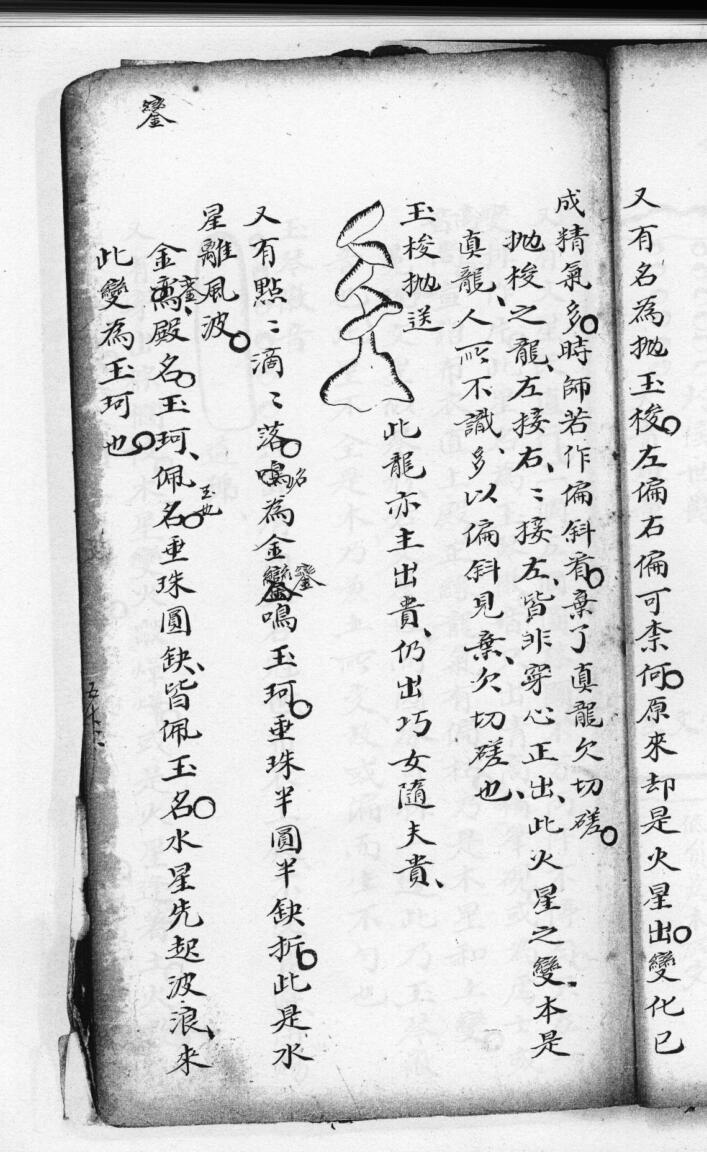 又有名為拋玉梭左偏右偏可柰何原來却是火星出變化已
成精氣多時師若作偏斜看棄了真龍欠切磋
拋梭之龍左接右〻接左皆非穿心正出此火星之變本是
真龍人所不識多以偏斜見棄欠切磋也
玉梭拋送
此龍亦主出貴仍出巧女隨夫貴
又有點〻滴〻落鳴名為金鑾鑾鳴玉珂垂珠半圓半缺折此是水
星離風波
金鑾殿名玉珂佩名垂珠圓缺皆佩玉名水星先起波浪來
玉也
此變為玉珂也
鑾